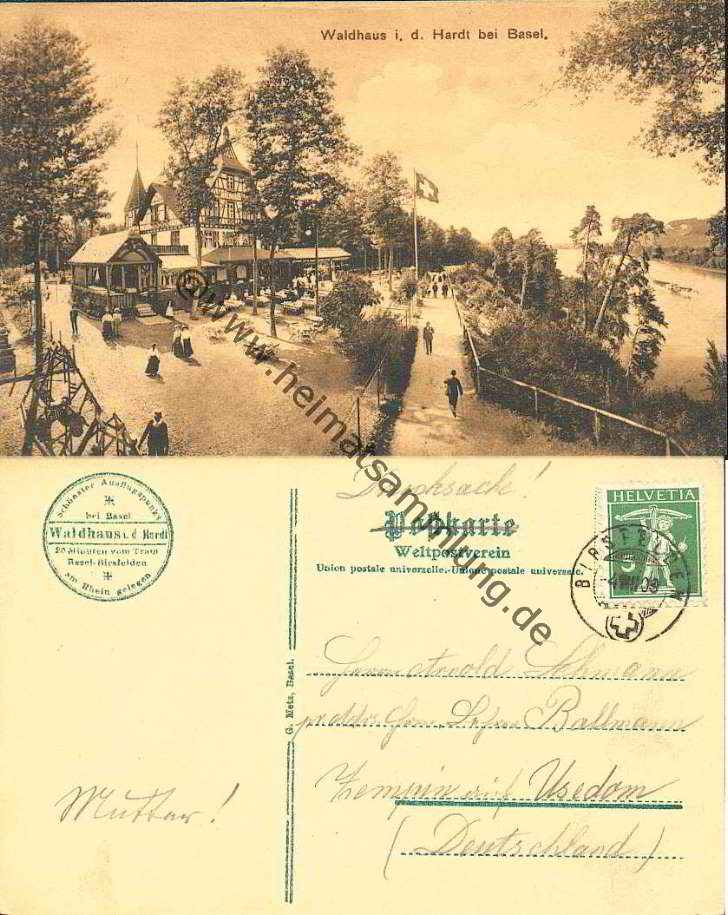 Waldhaus i. d. Hardt bei Basel.
© www.heimatsammlung.de
Schönster Ausflugspunkt
bei Basel
Waldhaus i. d. Hardt
20 Minuten vom Tram
Basel-Birsfelden
am Rhein gelegen
Drucksache!
Postkarte
Weltpostverein
Union postale universelle.-Unione postale universale.
HELVETIA
5
BIRSFELDEN
09
G. Metz, Basel.
Herrn Arnold
pr. adrs. Herrn Lehrer Ballmann
Zempin auf Usedom
(Deutschland)
Mutter!